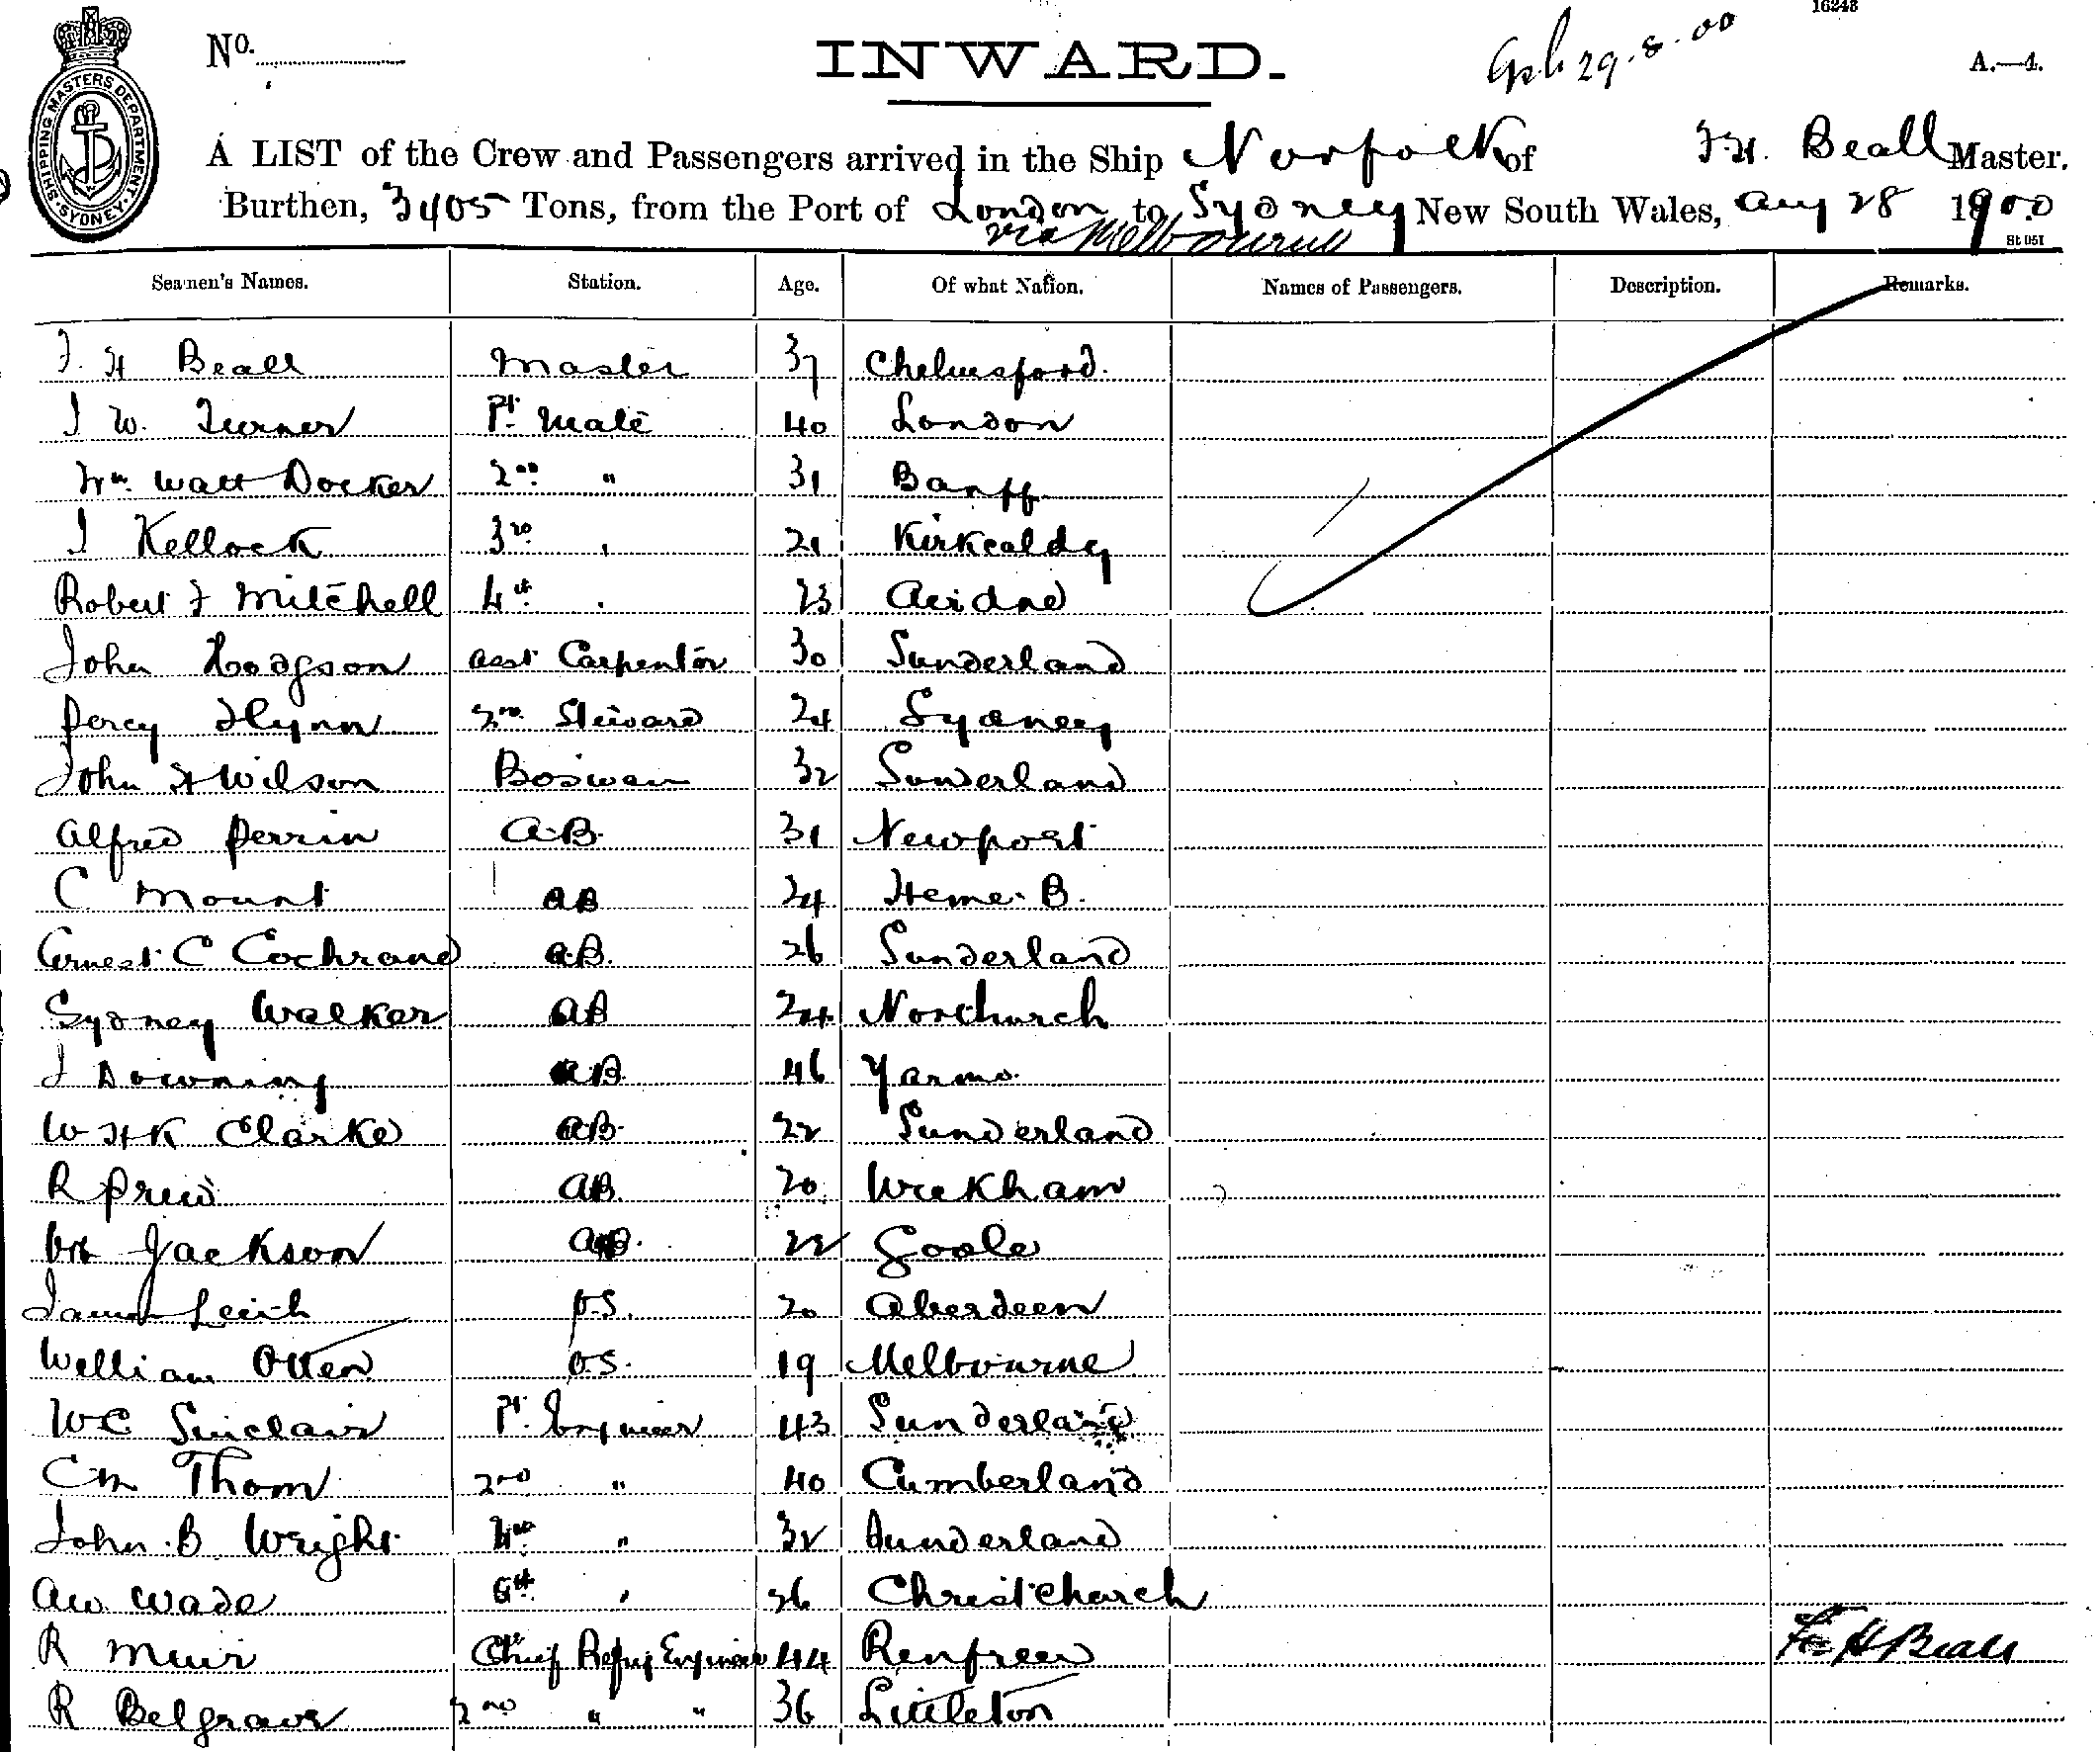 16248
No.
INWARD.
29.8.00
A.—4.
SHIPPING MASTERS DEPARTMENT · SYDNEY ·
A LIST of the Crew and Passengers arrived in the Ship Norfolk of F. H. Beall Master.
Burthen, 3405 Tons, from the Port of London to Sydney New South Wales, Aug 28 1900
via Melbourne
St 051
Seamen's Names. Station. Age. Of what Nation. Names of Passengers. Description. Remarks.
F. H Beall Master 37 Chelmsford.
J W. Turner 1st Mate 40 London
Wm Watt Docker 2nd " 31 Banff
J Kellock 3rd " 21 Kirkcaldy
Robert F Mitchell 4th " 23
John Hodgson Asst Carpenter 30 Sunderland
Percy Flynn 2nd Steward 24 Sydney
John H Wilson Boswain 32 Sunderland
Alfred Perrin A.B. 31 Newport
C Mount AB 24 Herne B.
Ernest C Cochrane A.B. 26 Sunderland
Sydney Walker AB 24 Norchurch
J Downing A.B. 46 Yarmo.
W H K Clarke AB. 22 Sunderland
R Prew AB. 20 Wrekham
Jackson AB. 22 Goole
James Leith O.S. 20 Aberdeen
William Otten O.S. 19 Melbourne
W C Sinclair 1st Engineer 43 Sunderland
C M Thom 2nd " 40 Cumberland
John B Wright 4th " 32 Sunderland
A W Wade 6th " 26 Christchurch
R Muir Chief Refrig Engineer 44 Renfrew F H Beall
R Belgrave 2nd " " 36 Littleton